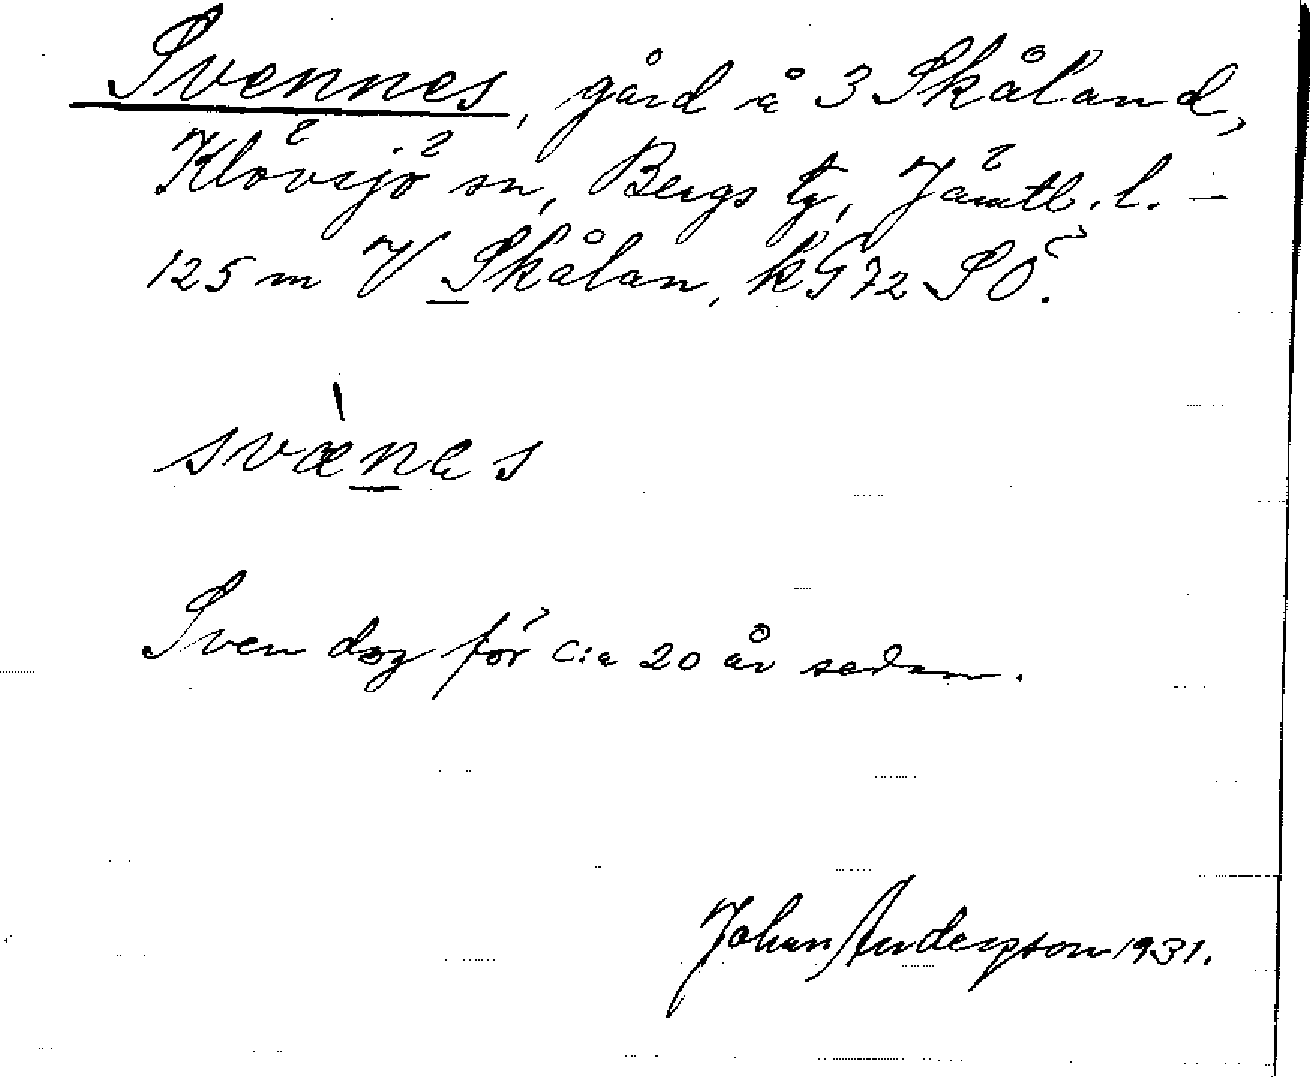 Svennes, gård å 3 Skåland,
Klövsjö sn, Bergs tg, Jämtl. l. –
125 m V Skålan, kG 72 SÖ.
svænes
Sven dog för c:a 20 år sedan.
Johan Andersson 1931.